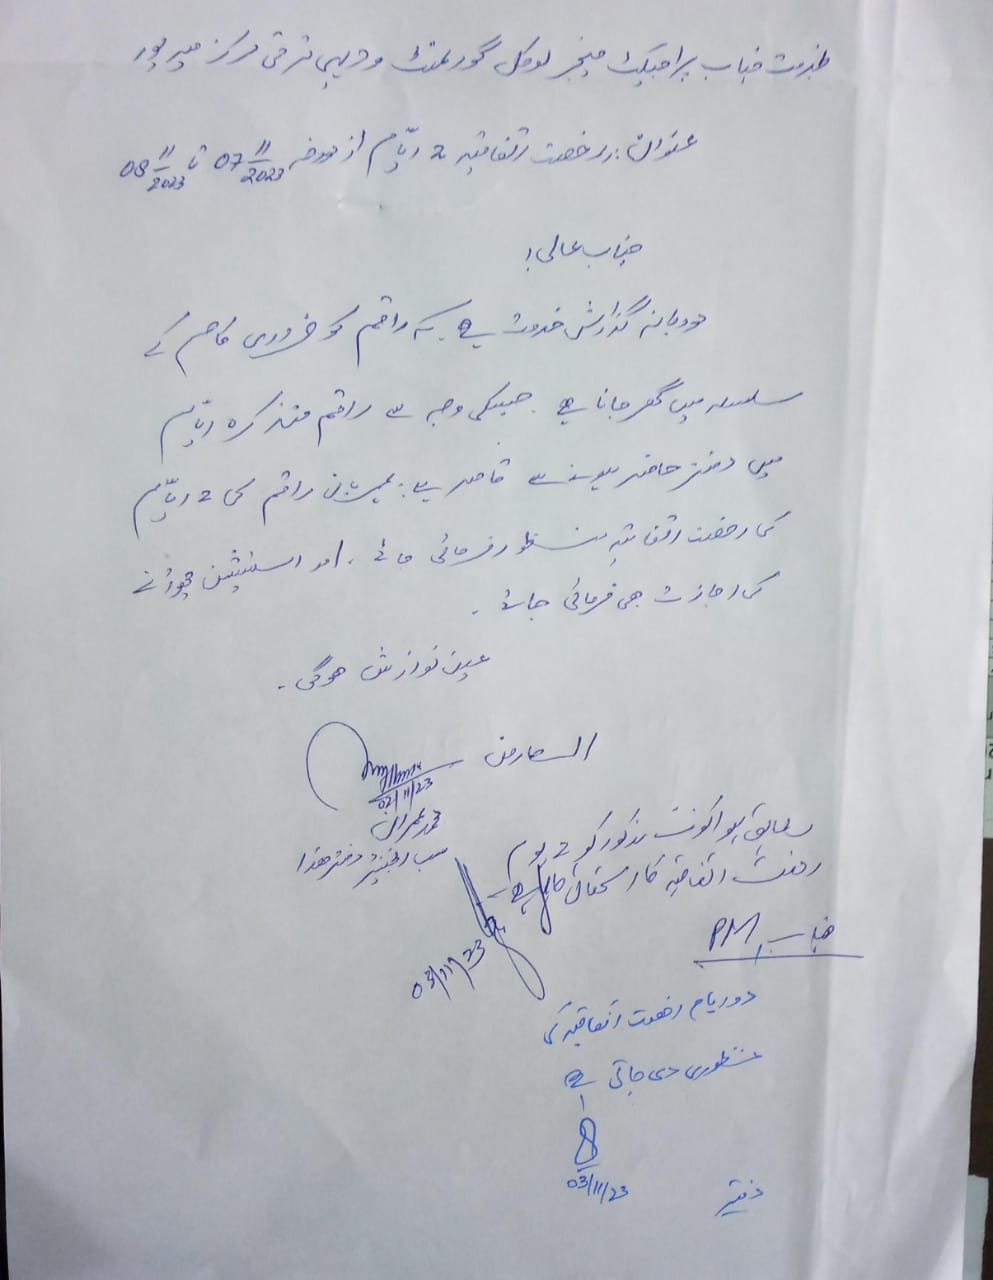 بخدمت جناب پراجیکٹ منیجر لوکل گورنمنٹ و دیہی ترقی مرکز میرپور
عنوان: رخصت اتفاقیہ 2 ایّام از مورخہ 07 11/2023 تا 08 11/2023
جناب عالی!
مودبانہ گذارش خدمت ہے۔ کہ راقم کو ضروری کام کے
سلسلہ میں گھر جانا ہے۔ جسکی وجہ سے راقم متذکرہ ایّام
میں دفتر حاضر ہونے سے قاصر ہے۔ راقم کی 2 ایّام
کی رخصت اتفاقیہ منظور فرمائی جائے۔ اور اسٹیشن چھوڑنے
کی اجازت بھی فرمائی جائے۔
عین نوازش ہوگی۔
العارض
02/11/23
محمد عمران
سب انجینئر دفتر ھذا
مذکور کو 2 یوم
رخصت اتفاقیہ کا استحقاق حاصل ہے
03/11/23
جناب PM
دو ایام رخصت اتفاقیہ کی
منظوری دی جاتی ہے
03/11/23
دفتر